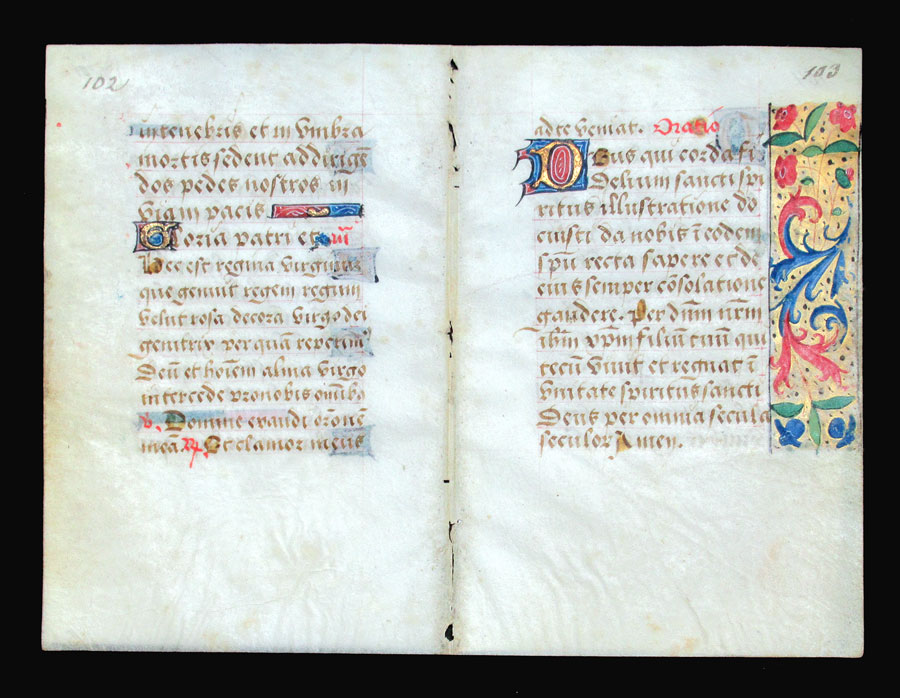 102
in tenebris et in vmbra
mortis sedent ad dirigē
dos pedes nostros in
viam pacis
Gloria patri et
Hec est regina virginū
que genuit regem regum
velut rosa decora virgo dei
genitrix per quā reperim9
Deū et hoīem alma virgo
intercede pro nobis omībo
v. Domine exaudi orōnem
meā. R. Et clamor meus
103
ad te veniat. Oratio
Deus qui corda fi
delium sancti spi
ritus illustratione do
cuisti da nobis ī eodem
spū recta sapere et de
eius semper cōsolatione
gaudere. Per dn̄m nr̄m
ihm̄ xpm̄ filiūm tuum qui
tecum viuit et regnat ī
vnitate spiritus sancti
Deus per omnia secula
seculor Amen.